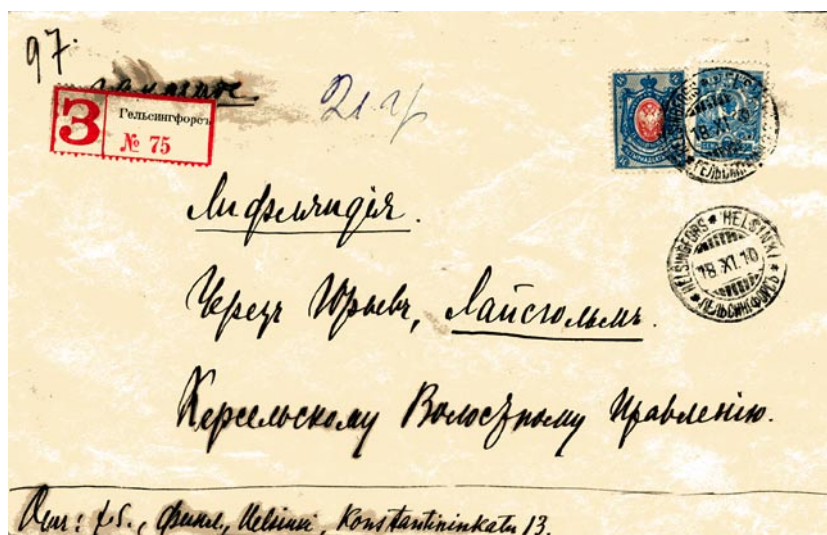 97.
заказное.
21 г
З Гельсингфорсъ
№ 75
HELSINGFORS * HELSINKI * ГЕЛЬСИНГФОРСЪ
18.XI.10
HELSINGFORS * HELSINKI * ГЕЛЬСИНГФОРСЪ
18.XI.10
Лифляндія.
Черезъ Юрьевъ, Лайсгольмъ.
Керсельскому Волостному Правленію.
Финл., Helsinki, Konstantininkatu 13.